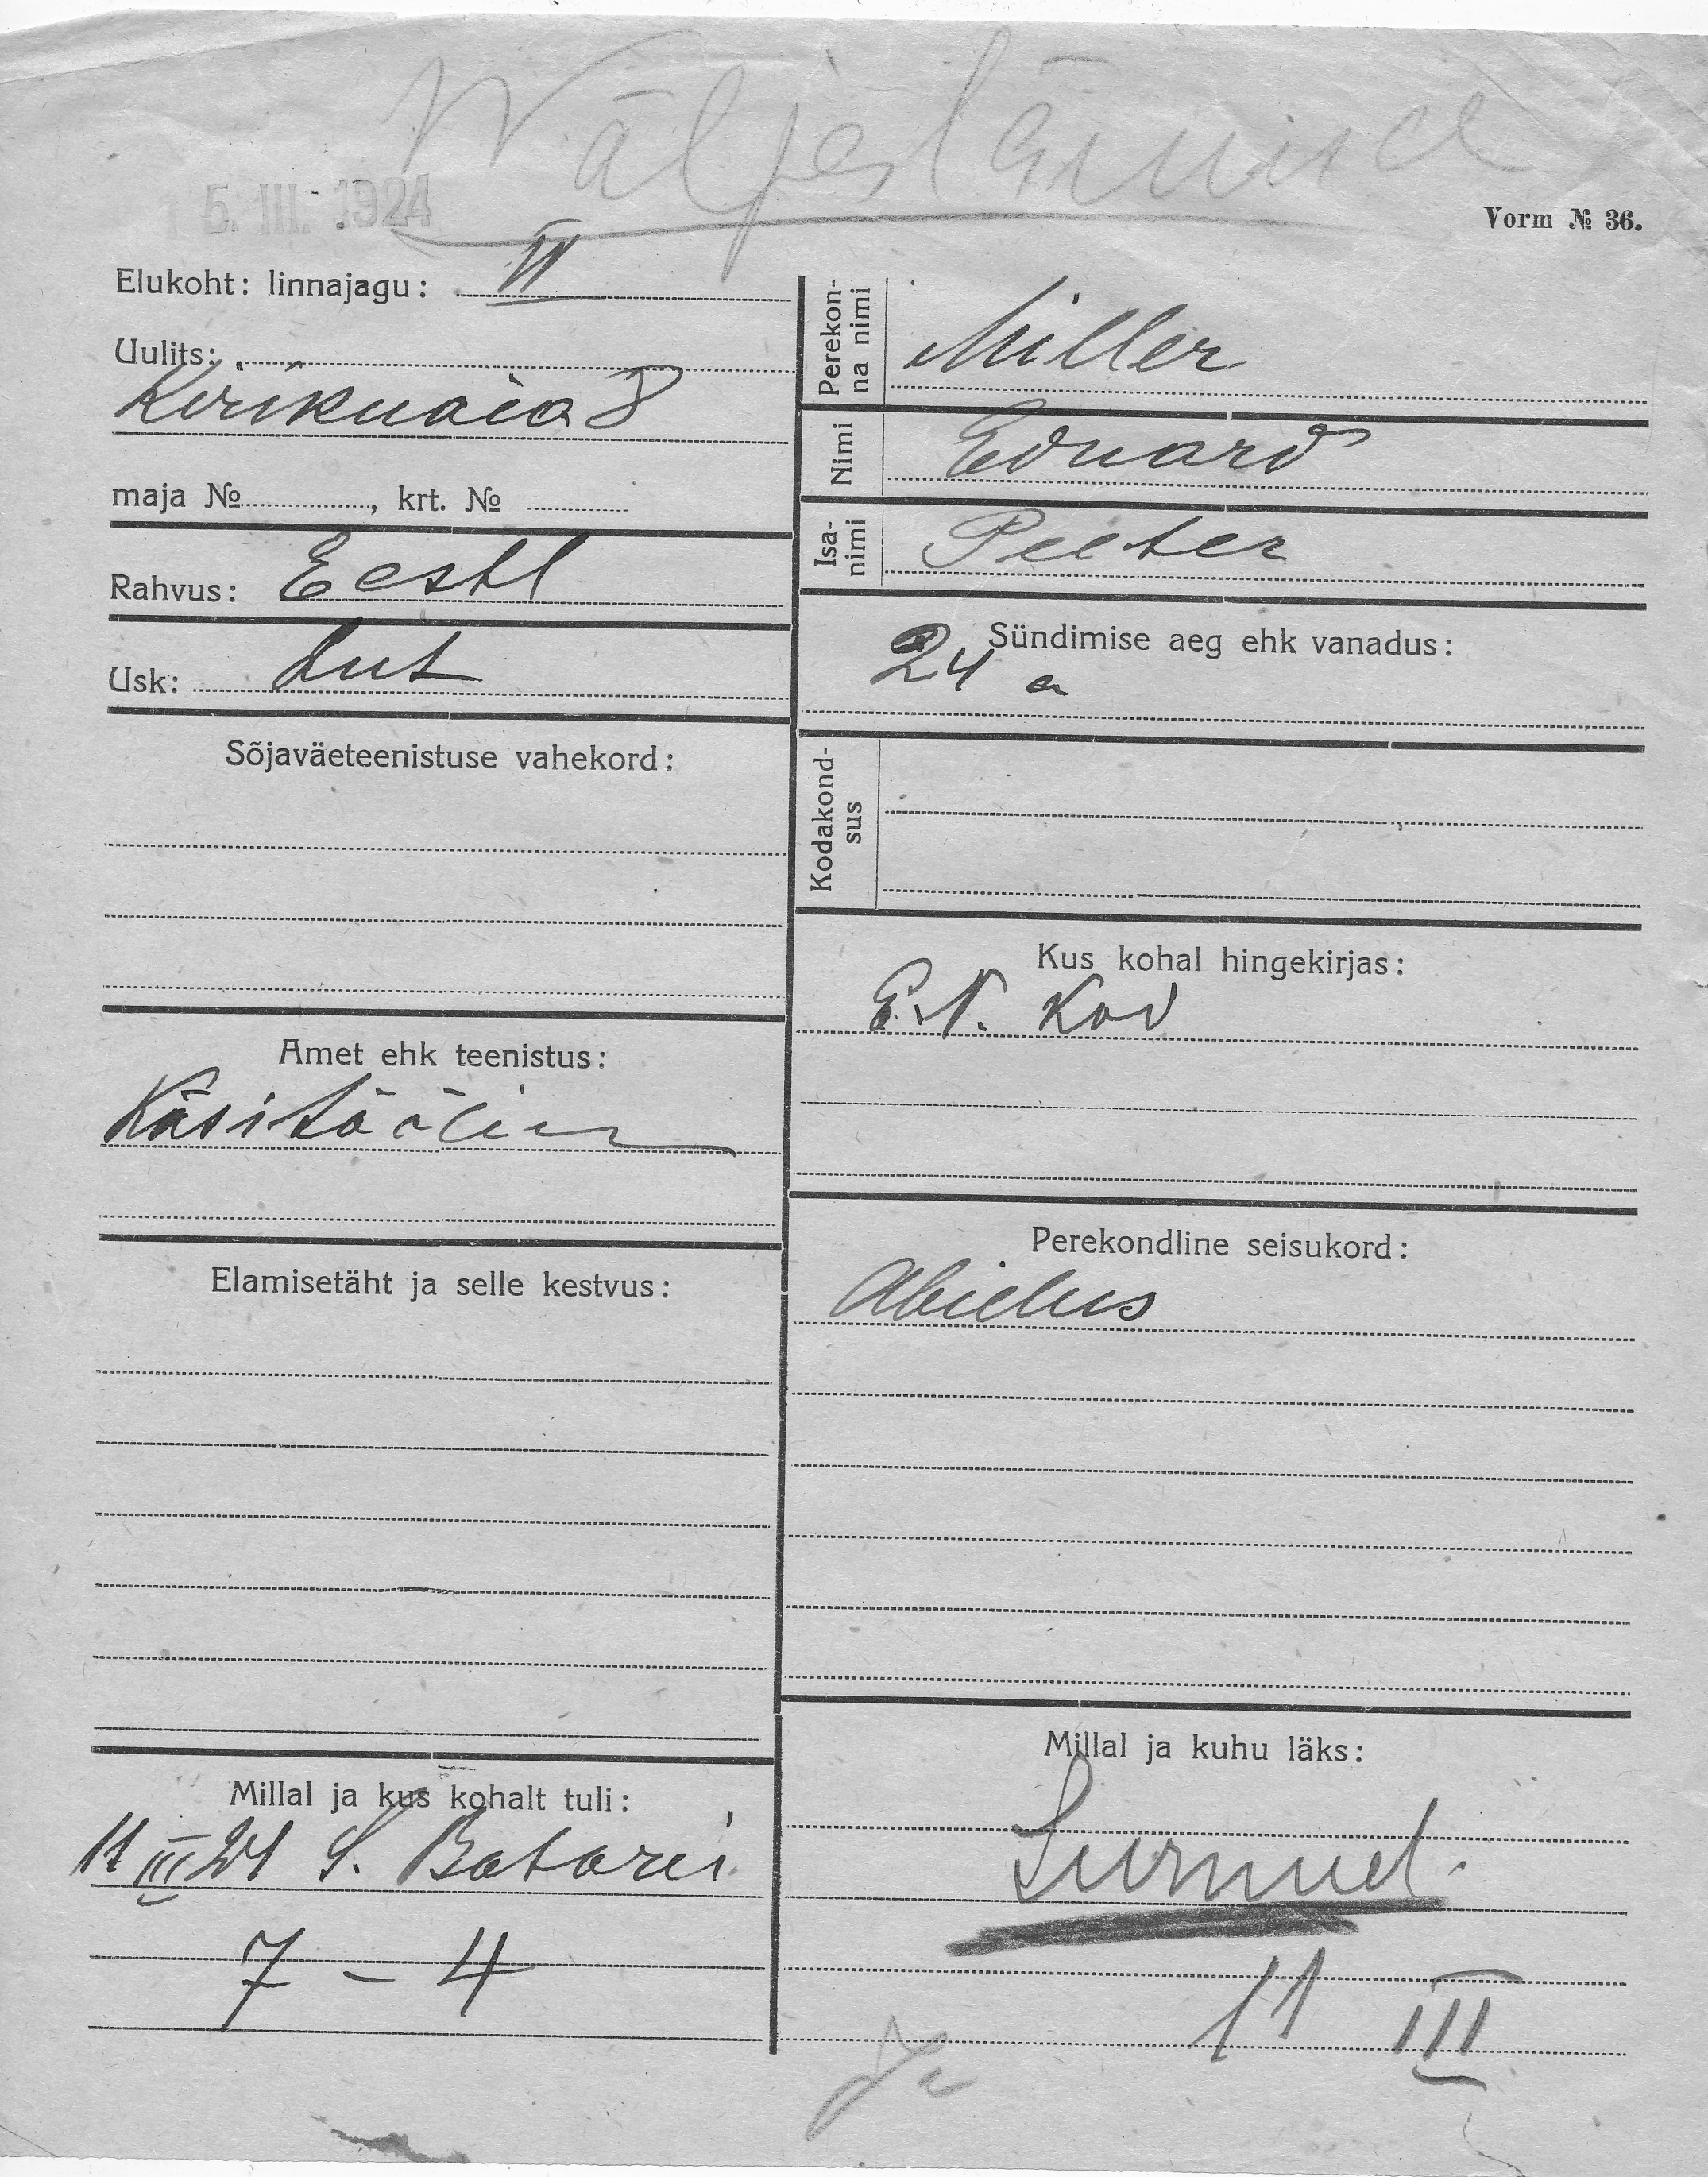 Wäljaläinud
15. III. 1924
Vorm № 36.
Elukoht: linnajagu: VI
Uulits:
Kirikuaia 8
maja № , krt. №
Rahvus: Eestl
Usk: Lut
Sõjaväeteenistuse vahekord:
Amet ehk teenistus:
Käsitööline
Elamisetäht ja selle kestvus:
Millal ja kus kohalt tuli:
11 III 24 S. Batarei
7 – 4
Perekon-
na nimi
Miller
Nimi
Eduard
Isa-
nimi
Peeter
Sündimise aeg ehk vanadus:
24 a
Kodakond-
sus
Kus kohal hingekirjas:
E. N. Kod
Perekondline seisukord:
Abielus
Millal ja kuhu läks:
Surnud.
11 III